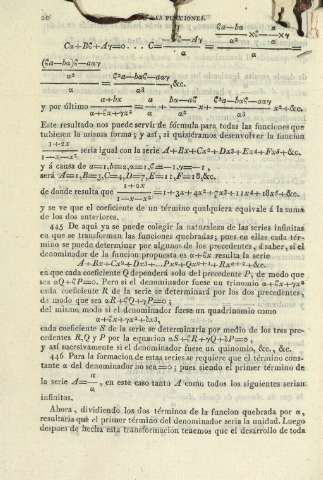 20 LAS FUNCIONES.
ζa—ba
Cα+Bζ+Aγ=0... C= —Aγ = α² α
α α
(ζa—ba)ζ—aαγ
α² ζ²a—baζ—aαγ
= ,&c.
α α3
a+bx a bα—aζ ζ²a—baζ—aαγ
y por último = + x+ x²+&c.
α+ζx+γx² α α² α3
Este resultado nos puede servir de fórmula para todas las funciones que
tubiesen la misma forma; y así, si quisiéramos desenvolver la funcion
1+2x
seria igual con la serie A+Bx+Cx²+Dx3+Ex4+Fx5+&c.
1—x—x²
y á causa de a=1,b=2,α=1,ζ=—1,γ=—1,
será A=1,B=3,C=4,D=7,E=11,F=18,&c.
1+2x
de donde resulta que =1+3x+4x²+7x3+11x4+18x5+&c.
1—x—x²
y se ve que el coeficiente de un término qualquiera equivale á la suma
de los dos anteriores.
445 De aquí ya se puede colegir la naturaleza de las series infinitas
en que se transforman las funciones quebradas; pues en ellas cada tér-
mino se puede determinar por algunos de los precedentes, á saber, si el
denominador de la funcion propuesta es α+ζx resulta la serie
A+Bx+Cx²+Dx3+...
en que cada coeficiente Q dependerá solo del precedente P, de modo que
sea αQ+ζP=0. Pero si el denominador fuese un trinomio α+ζx+γx²
cada coeficiente R de la serie se determinará por los dos precedentes,
de modo que sea αR+ζQ+γP=0;
del mismo modo si el denominador fuese un quadrinomio como
α+ζx+γx²+δx3,
cada coeficiente S de la serie se determinaria por medio de los tres pre-
cedentes R,Q y P por la equacion αS+ζR+γQ+δP=0,
y así sucesivamente si el denominador fuese un quinomio, &c., &c.
446 Para la formacion de estas series se requiere que el término cons-
tante α del denominador no sea=0; pues siendo el primer término de
a
la serie A=—, en este caso tanto A como todos los siguientes serian
α
infinitos.
Ahora, dividiendo los dos términos de la funcion quebrada por α,
resultaria que el primer término del denominador seria la unidad. Luego
despues de hecha esta transformacion tenemos que el desarrollo de toda